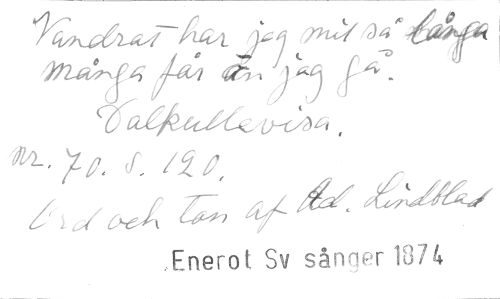 Vandrat har jag mil så långa
många får än jag gå.
Dalkullevisa.
nr. 70. s. 120.
Ord och ton af Ad. Lindblad
Enerot Sv sånger 1874